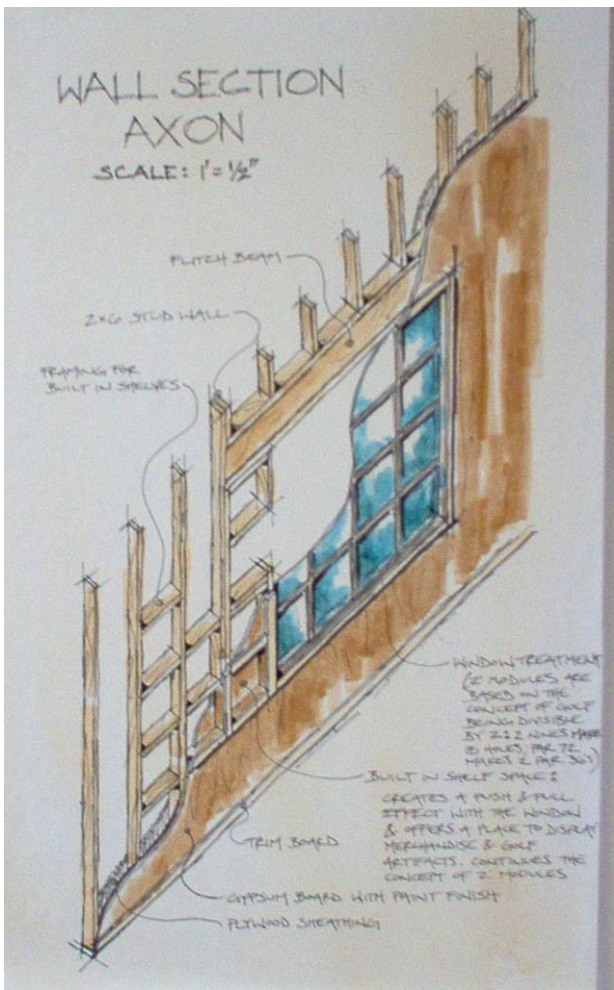 WALL SECTION
AXON
SCALE: 1'=1/2"
FLITCH BEAM
2x6 STUD WALL
FRAMING FOR
BUILT IN SHELVES
WINDOW TREATMENT
(2 MODULES ARE
BASED ON THE
CONCEPT OF GOLF
BEING DIVISIBLE
BY 2: 2 NINES MAKE
18 HOLES, PAR 72
MAKES 2 PAR 36s)
BUILT IN SHELF SPACE:
CREATES A PUSH & PULL
EFFECT WITH THE WINDOW
& OFFERS A PLACE TO DISPLAY
MERCHANDISE & GOLF
ARTIFACTS. CONTINUES THE
CONCEPT OF 2 MODULES
TRIM BOARD
GYPSUM BOARD WITH PAINT FINISH
PLYWOOD SHEATHING